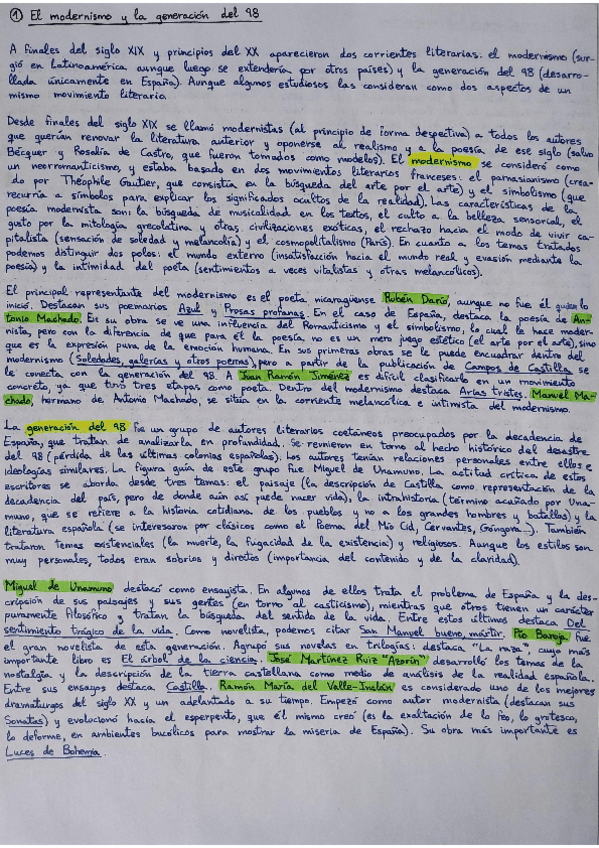 ① El modernismo y la generación del 98
A finales del siglo XIX y principios del XX aparecieron dos corrientes literarias: el modernismo (sur-
gió en Latinoamérica aunque luego se extendería por otros países) y la generación del 98 (desarro-
llada únicamente en España). Aunque algunos estudiosos las consideran como dos aspectos de un
mismo movimiento literario.
Desde finales del siglo XIX se llamó modernistas (al principio de forma despectiva) a todos los autores
que querían renovar la literatura anterior y oponerse al realismo y a la poesía de ese siglo (salvo
Bécquer y Rosalía de Castro, que fueron tomados como modelos). El modernismo se consideró como
un neorromanticismo, y estaba basado en dos movimientos literarios franceses: el parnasianismo (crea-
do por Théophile Gautier, que consistía en la búsqueda del arte por el arte) y el simbolismo (que
recurría a símbolos para explicar los significados ocultos de la realidad). Las características de la
poesía modernista son: la búsqueda de musicalidad en los textos, el culto a la belleza sensorial, el
gusto por la mitología grecolatina y otras civilizaciones exóticas, el rechazo hacia el modo de vivir ca-
pitalista (sensación de soledad y melancolía) y el cosmopolitalismo (París). En cuanto a los temas tratados
podemos distinguir dos polos: el mundo externo (insatisfacción hacia el mundo real y evasión mediante la
poesía) y la intimidad del poeta (sentimientos a veces vitalistas y otras melancólicos).
El principal representante del modernismo es el poeta nicaragüense Rubén Darío, aunque no fue él quien lo
inició. Destacan sus poemarios Azul y Prosas profanas. En el caso de España, destaca la poesía de An-
tonio Machado. En su obra se ve una influencia del Romanticismo y el simbolismo, lo cual le hace moder-
nista, pero con la diferencia de que para él la poesía, no es un mero juego estético (el arte por el arte), sino
que es la expresión pura de la emoción humana. En sus primeras obras se le puede encuadrar dentro del
modernismo (Soledades, galerías y otros poemas), pero a partir de la publicación de Campos de Castilla se
le conecta con la generación del 98. A Juan Ramón Jiménez es difícil clasificarlo en un movimiento
concreto, ya que tuvo tres etapas como poeta. Dentro del modernismo destaca Arias tristes. Manuel Ma-
chado, hermano de Antonio Machado, se sitúa en la corriente melancólica e intimista del modernismo.
La generación del 98 fue un grupo de autores literarios coetáneos preocupados por la decadencia de
España, que tratan de analizarla en profundidad. Se reunieron en torno al hecho histórico del desastre
del 98 (pérdida de las últimas colonias españolas). Los autores tenían relaciones personales entre ellos e
ideologías similares. La figura guía de este grupo fue Miguel de Unamuno. La actitud crítica de estos
escritores se aborda desde tres temas: el paisaje (la descripción de Castilla como representación de la
decadencia del país, pero de donde aún así puede nacer vida), la intrahistoria (término acuñado por Una-
muno, que se refiere a la historia cotidiana de los pueblos y no a los grandes hombres y batallas) y la
literatura española (se interesaron por clásicos como el Poema del Mio Cid, Cervantes, Góngora...). También
trataron temas existenciales (la muerte, la fugacidad de la existencia) y religiosos. Aunque los estilos son
muy personales, todos eran sobrios y directos (importancia del contenido y de la claridad).
Miguel de Unamuno destacó como ensayista. En algunos de ellos trata el problema de España y la des-
cripción de sus paisajes y sus gentes (en torno al casticismo), mientras que otros tienen un carácter
puramente filosófico y tratan la búsqueda del sentido de la vida. Entre estos últimos destaca Del
sentimiento trágico de la vida. Como novelista, podemos citar San Manuel bueno, mártir. Pío Baroja fue
el gran novelista de esta generación. Agrupó sus novelas en trilogías: destaca "La raza", cuyo más
importante libro es El árbol de la ciencia. José Martínez Ruiz "Azorín" desarrolló los temas de la
nostalgia y la descripción de la tierra castellana como medio de análisis de la realidad española.
Entre sus ensayos destaca Castilla. Ramón María del Valle-Inclán es considerado uno de los mejores
dramaturgos del siglo XX y un adelantado a su tiempo. Empezó como autor modernista (destacan sus
Sonatas) y evolucionó hacia el esperpento, que él mismo creó (es la exaltación de lo feo, lo grotesco,
lo deforme, en ambientes bucólicos para mostrar la miseria de España). Su obra más importante es
Luces de Bohemia.